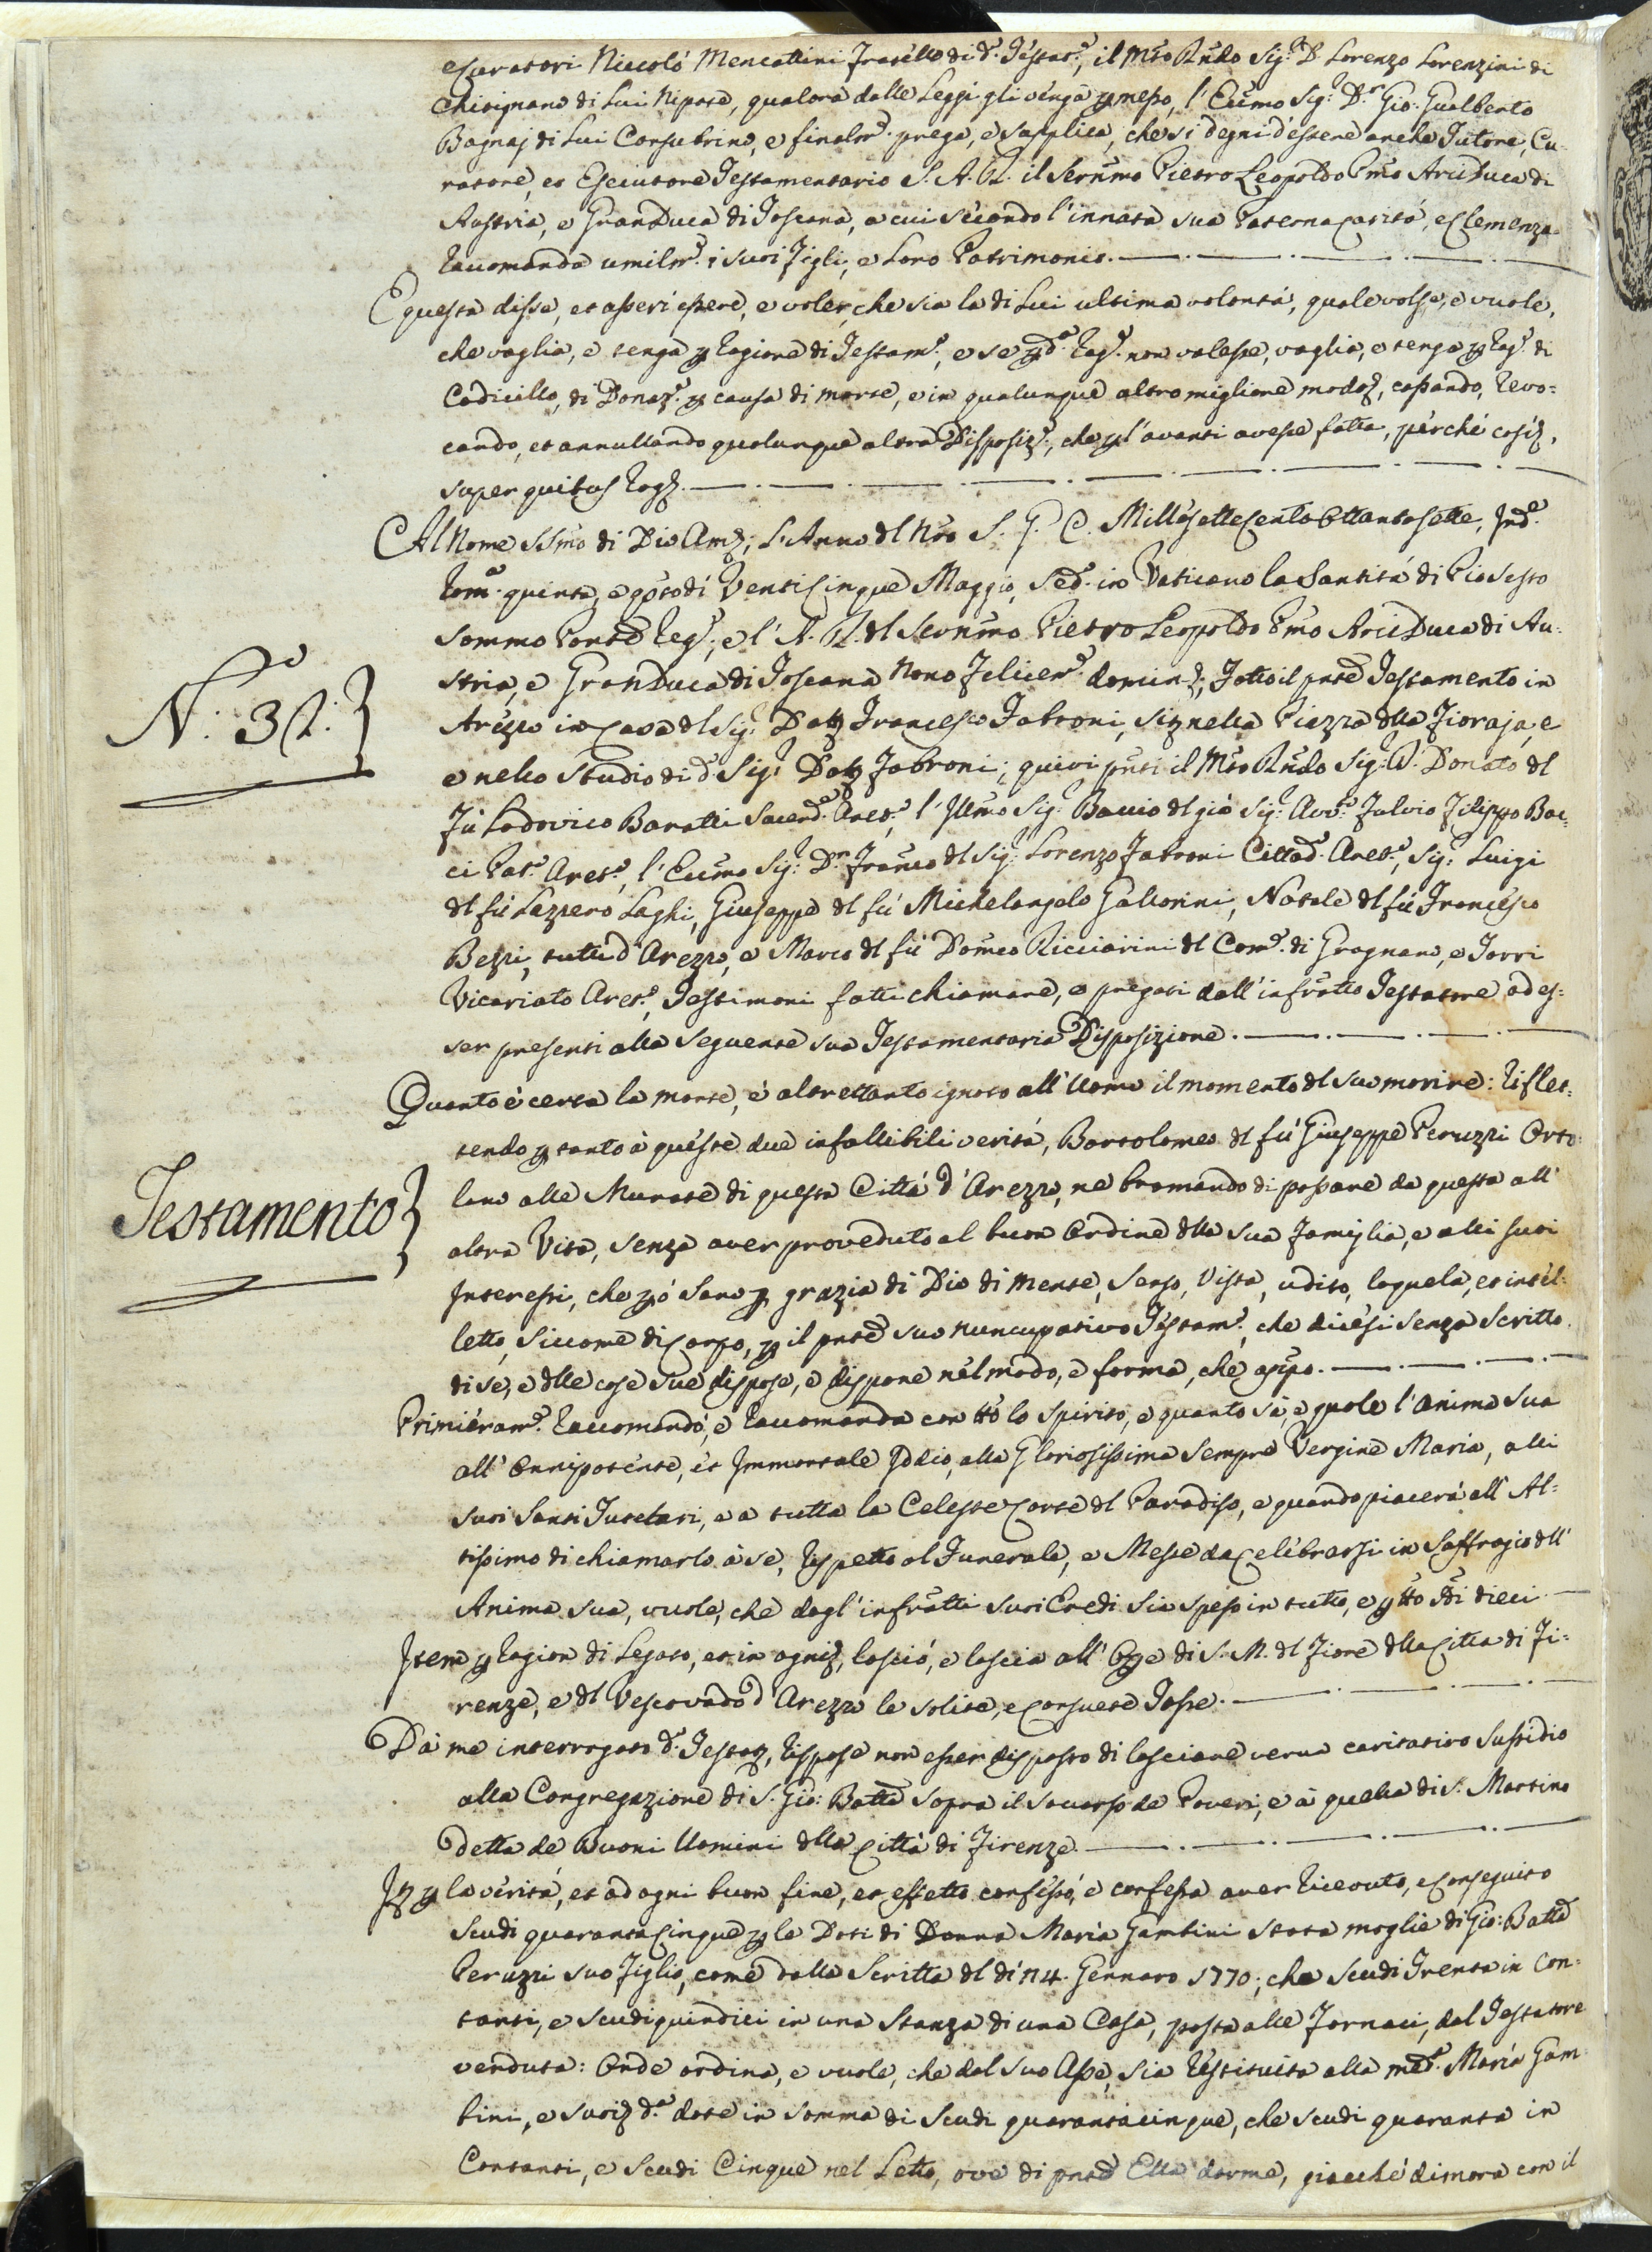 e Curatori Niccolò Mencattini Fratello di d.º Testat.e, il Mto Rndo Sig.r D. Lorenzo Lorenzini di
Chisignano di Lui Nipote, qualora dalle Leggi gli venga pmesso, l'Ecc̄mo Sig.r D.r Gio: Gualberto
Bagnaj di Lui Consubrino, e finalm.e prega, e supplica, che si degni d'essere anche Tutore, Cu-
ratore, et Esecutore Testamentario S. A. R. il Serm̄o Pietro Leopoldo Pm̄o Arci Duca di
Austria, e Gran Duca di Toscana, a cui secondo l'innata sua Paterna Carità, e Clemenza
raccomanda umilm.e i suoi Figli, e Loro Patrimonio.
E questa disse, et asserì essere, e voler, che sia la di Lui ultima volontà, quale volse, e vuole,
che vaglia, e tenga p ragione di Testam.º, e se p d.a rag.e non valesse, vaglia, e tenga p rag.e di
Codicillo, di Donaz.e p causa di morte, e in qualunque altro migliore modo, cassando, revo=
cando, et annullando qualunque altra Disposiz.e, che p l'avanti avesse fatta, perchè così,
super quibus Rog.
Al Nome SSm̄o di Dio Am̄, L'Anno dl Nr̄o S. G. C. Millesettecento Ottantasette, Ind.e
Rom.a quinta, e qsto dì Venticinque Maggio, Sed.e in Vaticano la Santità di Pio Sesto
Sommo Pontē Reg.e, e l'A. R. dl Serm̄o Pietro Leopoldo Pm̄o Arci Duca di Au-
stria, e Gran Duca di Toscana Nono Felicem.e domin., Fatto il pntē Testamento in
Arezzo in Casa dl Sig.r Dott Francesco Fabroni, sit nella Piazza dlla Fioraja, e
e nello Studio di d.º Sig.r Dott Fabroni; quivi pnti il Mto Rndo Sig.r D. Donato dl
fù Lodovico Baratti Sacerd.e Aret.º, l'Illm̄o Sig.r Baccio dl già Sig.r Avv.º Fulvio Filippo Bac-
ci Pat.º Aret.º, l'Ecc̄mo Sig.r D.r Franc̄o dl Sig.r Lorenzo Fabroni Cittad.º Aret.º, Sig.r Luigi
dl fù Lazzero Laghi, Giuseppe dl fù Michelangelo Gallorini, Natale dl fù Francesco
Bezzi, tutti d'Arezzo, e Marco dl fù Domc̄o Ricciarini dl Com.e di Gragnano, e Torri
Vicariato Aret.º, Testimoni fatti chiamare, e pregati dall'infratto Testatore ad es=
ser presenti alla seguente sua Testamentaria Disposizione.
N.º 32.
Quanto è certa la morte, è altrettanto ignoto all'Uomo il momento dl suo morire: Riflet=
tendo p tanto à queste due infallibili verità, Bartolomeo dl fù Giuseppe Peruzzi Orto-
lano alle Murate di questa Città d'Arezzo, ne bramando di passare da questa all'
altra Vita, senza aver proveduto al buon Ordine dlla sua Famiglia, e alli suoi
Testamento
Interessi, che pò Sano p grazia di Dio di Mente, Senso, Vista, udito, loquela, et intel-
letto, siccome di Corpo, p il pntē suo nuncupativo Testam.º, che dicesi senza Scritto
di se, e dlle cose sue dispose, e dispone nel modo, e forma, che app̄o.
Primieram.e Raccomandò, e Raccomanda con tt̄o lo spirito, e quanto sà, e puole l'Anima sua
all'Onnipotente, et Immortale Iddio, alla Gloriosissima sempre Vergine Maria, alli
suoi Santi Tutelari, e a tutta la Celeste Corte dl Paradiso, e quando piacerà all'Al=
tissimo di chiamarlo à se, Rispetto al Funerale, e Messe da Celebrarsi in Suffragio dll'
Anima sua, vuole, che dagl'infratti suoi Eredi sia speso in tutto, e p tt̄o Sdi dieci
Item p ragion di Legato, et in ogni, lasciò, e lascia all'Oppe di S. M. dl Fiore dlla Città di Fi=
renze, e dl Vescovado d'Arezzo le solite, e Consuete Tasse.
Da me interrogato d.º Testat, rispose non esser disposto di lasciare verun caritativo Sussidio
alla Congregazione di S. Gio: Battā sopra il soccorso de Poveri, e à quella di S. Martino
detta de Buoni Uomini dlla Città di Firenze.
It p la verità, et ad ogni buon fine, et effetto confessò, e confessa aver ricevuto, e conseguito
Scudi quarantacinque p le Doti di Donna Maria Gambini stata moglie di Gio: Battā
Peruzzi suo Figlio, come dalla Scritta dl dì 14. Gennaro 1770; che Scudi Trenta in Con-
tanti, e Scudi quindici in una Stanza di una Casa, posta alle Fornaci, dal Testatore
venduta: Onde ordina, e vuole, che dal suo Asse, sia restituita alla med.a Maria Gam-
bini, e suoi d.a dote in somma di Scudi quarantacinque, che scudi quaranta in
Contanti, e Scudi Cinque nel Letto, ove di pntē Ella dorme, giacchè dimora con il